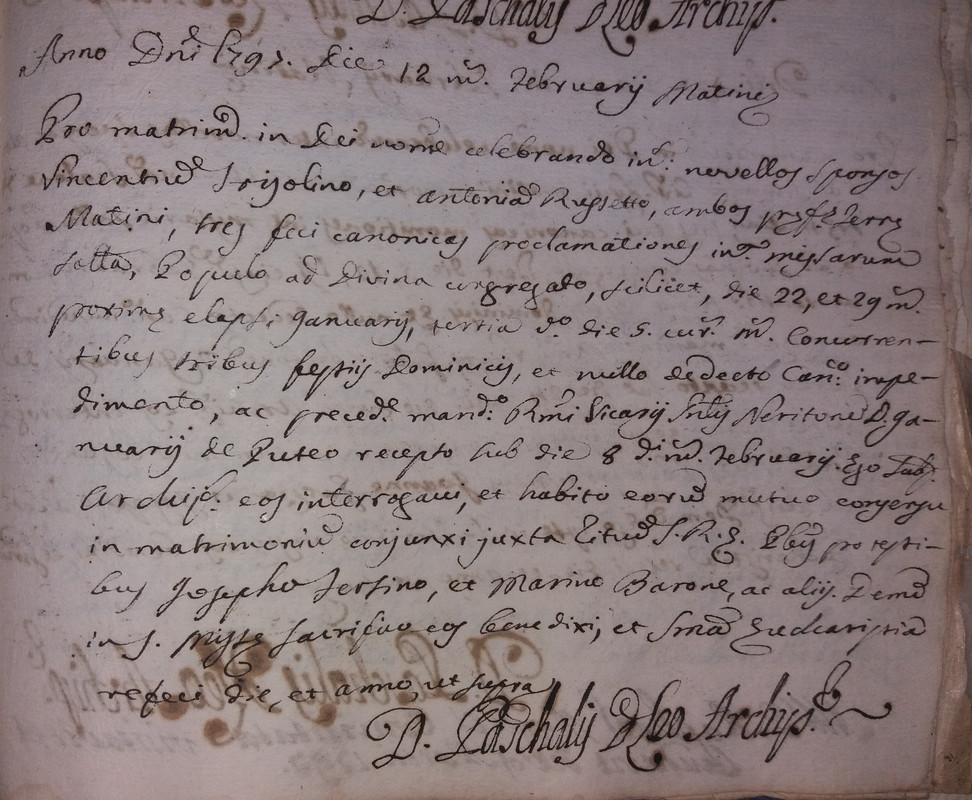 D. Paschalis d Leo Archip.
Anno Dni 1797. die 12 m. Februarij Matini
Pro matrim. in Dei nomē celebrando int: novellos sponsos
Vincentiū, et Antoniā Russetto, ambos Terrę
Matini, tres feci canonicas proclamationes int. missarum
solēa, Populo ad Divina congregato, scilicet, die 22, et 29 m.
proximę elapsi Januarij, tertia v.o die 5. cur. m. Concurren-
tibus tribus festis Dominicis, et nullo dedecto Can.co impe-
dimento, ac preced.e mand.o Rmi Vicarij Neritonē D. Ja-
nuarij de Puteo recepto sub die 8 d. m. Februarij. Ego Sub.
Archip. eos interrogavi, et habito eorū mutuo consensu
in matrimoniū conjunxi juxta Ritūs S. R. E. pro testi-
bus Josepho Sersino, et Marino Barone, ac alijs. Demū
in s. Missę sacrificio eos benedixi, et Smā Eucharistiā
refeci die, et anno, ut supra
D. Paschalis d Leo Archip.r